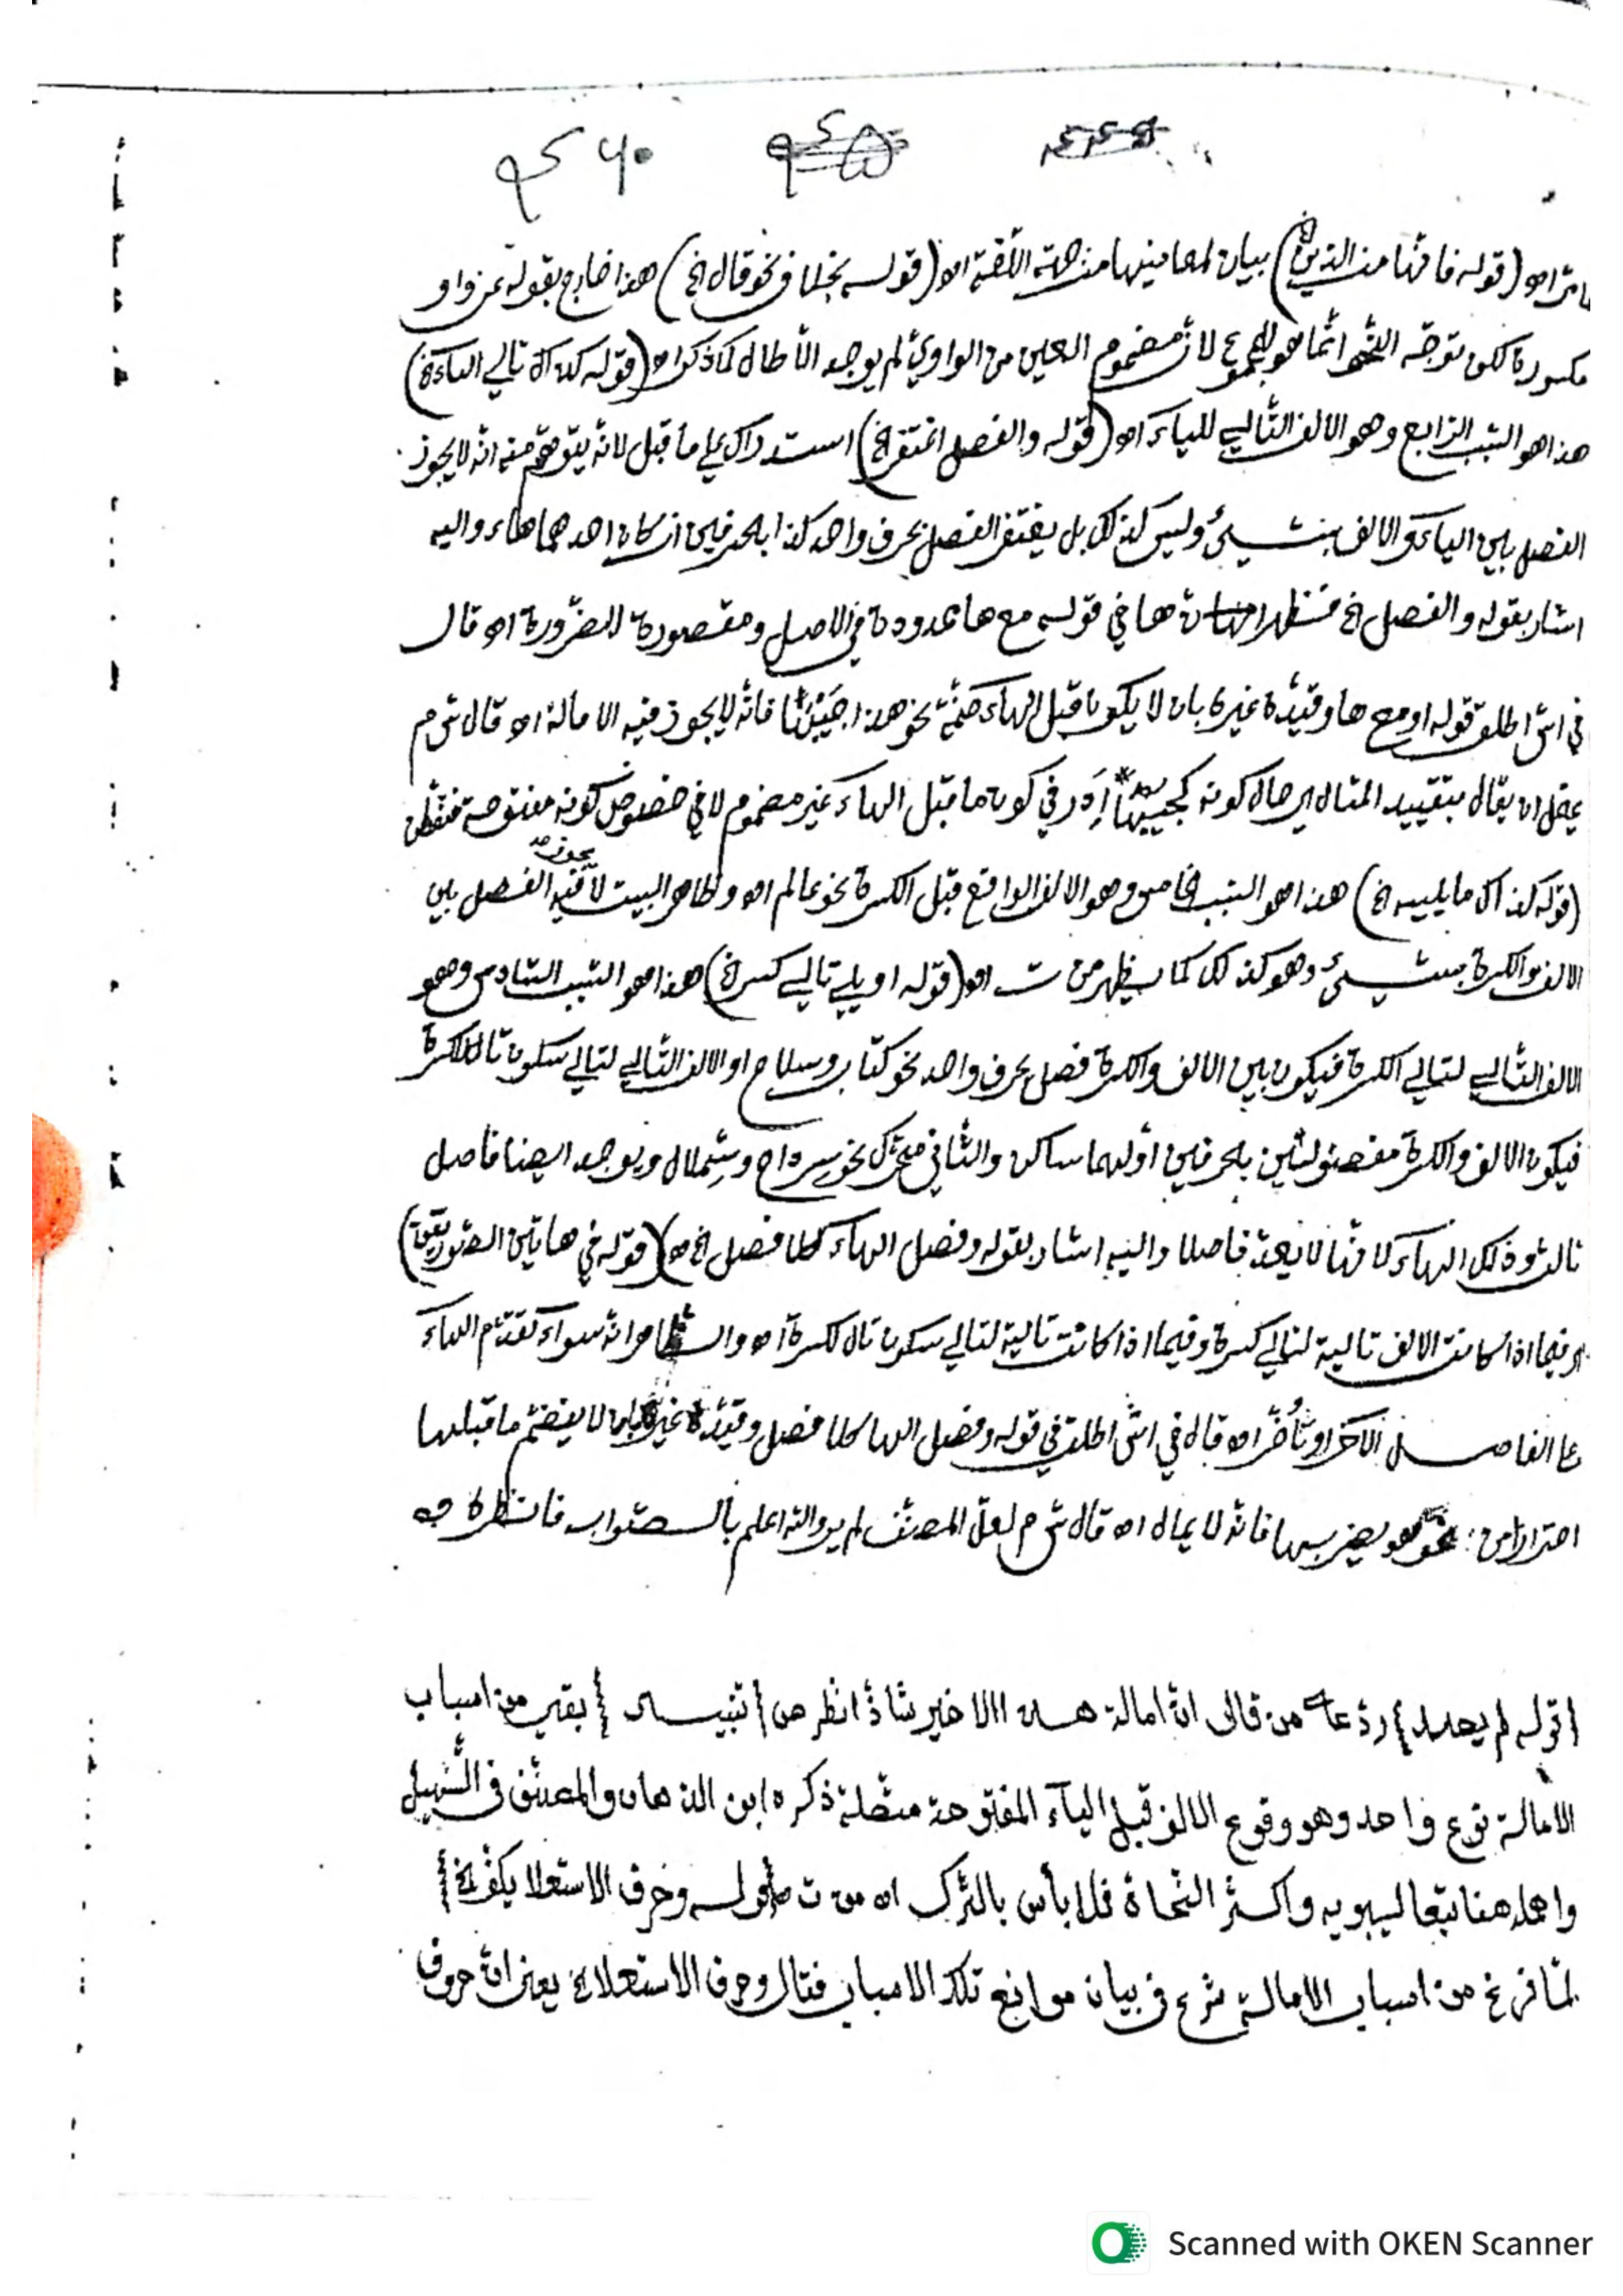 ٩٤٦٠
(قوله فانها من الدين الخ) بيان لمعانيها من جهة اللغة اه (قوله بخلاف نحو قال الخ) هذا خارج بقوله عن واو
مكسورة لكن توجه انما هو للمجموع لان مضموم العين من الواوي لم يوجد الا طال كما ذكر اه (قوله كذاك تالي الياء الخ)
هذا هو السبب الرابع وهو الالف التالي للياء اه (قوله والفصل اغتفر الخ) استدراك على ما قبل لانه يتوهم منه انه لا يجوز
الفصل بين الياء والالف بشيئ وليس كذلك بل يغتفر الفصل بحرف واحد كذا بالحرفين ان كان احدهما هاء واليه
اشار بقوله والفصل الخ ها في قوله مع ها ممدودة في الاصل ومقصورة للضرورة اه قال
في اش اطلق قوله او مع ها وقيده غيره بان لا يكون ما قبل الهاء ضمة نحو هذا جيبها فانه لا يجوز فيه الامالة اه قال ش م
ان يقال بتقييد المثال اي حال كونه كجيبها أدر في كون ما قبل الهاء غير مضموم لا في خصوص كونه مفتوحة
(قوله كذاك ما يليه الخ) هذا هو السبب الخامس وهو الالف الواقع قبل الكسرة نحو عالم اه وظاهر البيت لا يجوز فيه الفصل بين
الالف والكسرة بشيئ وهو كذلك كما يظهر من ت اه (قوله او يلي تالي كسر الخ) هذا هو السبب السادس وهو
الالف التالي لتالي الكسرة فيكون بين الالف والكسرة فصل بحرف واحد نحو كتاب وسلاح او الالف التالي لتالي سكون تال للكسرة
فيكون الالف والكسرة مفصولين بالحرفين أولهما ساكن والثاني متحرك نحو سرداح وشِملال ويوجد ايضا فاصل
ثالث وذلك الهاء لانها لا يعد فاصلا واليه اشار بقوله وفصل الهاء كلا فصل الخ اه (قوله في هاتين الصورتين)
اي فيما اذا كانت الالف تالية لتالي كسرة وفيما اذا كانت تالية لتالي سكون تال لكسرة اه والظاهر انه سواء تقدم الهاء
على الفاصل الآخر او تأخر اه قال في اش اطلق في قوله وفصل الها كلا فصل وقيده غيره بان لا ينضم ما قبلها
احترازا من: نحو هو يضربها فانه لا يمال اه قال ش م لعل المصنف لم يرد والله اعلم بالصواب فانظره
{قوله لم يصد} رد على من قال ان امالة هذا الاخير شاذ انظر ص {تنبيه} بقي من اسباب
الامالة نوع واحد وهو وقوع الالف قبل الياء المفتوحة متصلة ذكره ابن الدهان والمصنف في التسهيل
واهمله هنا تبعا لسيبويه واكثر النحاة فلا بأس بالترك اه من ت {قوله وحرف الاستعلا يكف الخ}
لما فرغ من اسباب الامالة شرع في بيان موانع تلك الاسباب فقال وحرف الاستعلا الخ يعني ان حروف
Scanned with OKEN Scanner